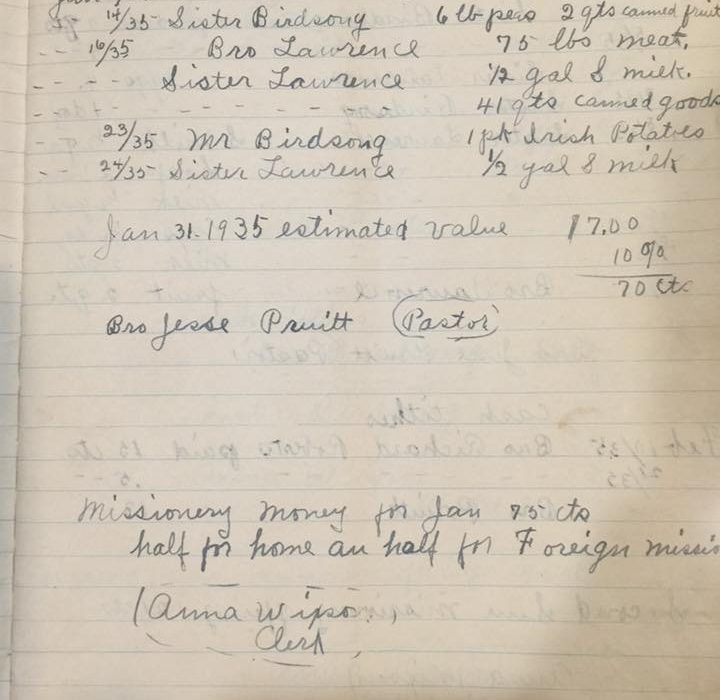 14/35 Sister Birdsong 6 lb peas 2 qts canned fruit
- - 16/35 Bro Lawrence 75 lbs meat.
- - - - Sister Lawrence 1/2 gal S milk.
- - - - - - - - 41 qts canned goods
- 23/35 Mr Birdsong 1 pk Irish Potatoes
- - 24/35 Sister Lawrence 1/2 gal S milk
Jan 31. 1935 estimated value 17.00
10 %
70 cts
Bro Jesse Pruitt (Pastor)
Missionery money for Jan 75 cts
half for home an half for Foreign missio
(Anna
Clerk